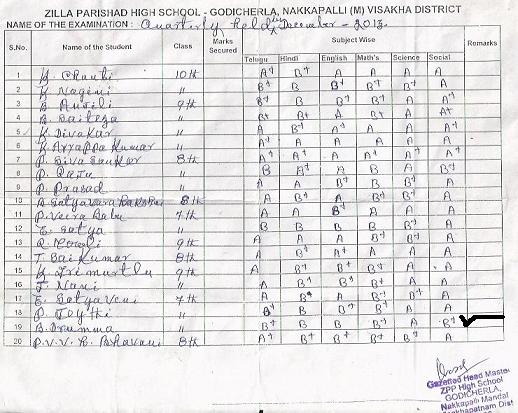 ZILLA PARISHAD HIGH SCHOOL - GODICHERLA, NAKKAPALLI (M) VISAKHA DISTRICT
NAME OF THE EXAMINATION : Quarterly held December - 2013.
S.No. Name of the Student Class Marks Secured Subject Wise Remarks
Telugu Hindi English Math's Science Social
1 K. 10th A+ B+ A A A A
2 K. Nageni " B B B+ B+ B A
3 B. 9th B+ B B+ B+ A A+
4 " B+ B+ A B+ A A+
5 K. Divakar " A B+ A+ A A A
6 K. Kumar " A+ A A A A A
7 P. Siva Sankar 8th A+ A+ A+ A A A+
8 P. Raju " B A+ A B A B+
9 P. Prasad " A A B+ B B+ A
10 8th B+ B+ A B+ B A
11 P. Veera Babu 7th A A B+ A A A
12 E. Satya " B B B B B+ A
13 9th A A A B+ B+ A
14 T. Sai Kumar 8th A B+ A+ A A A
15 K. Trimurtlu 9th A B+ B+ A A A
16 T. Nani " A B+ B+ B+ B+ A
17 E. Satyaveni 7th A B+ A B+ B+ A
18 P. " B+ B B+ B+ A A
19 " B+ B B B+ A B+
20 P.V.V. B. Bhavani 8th A+ B+ A B+ B+ A
Gazetted Head Master
ZPP High School
GODICHERLA,
Nakkapalli Mandal